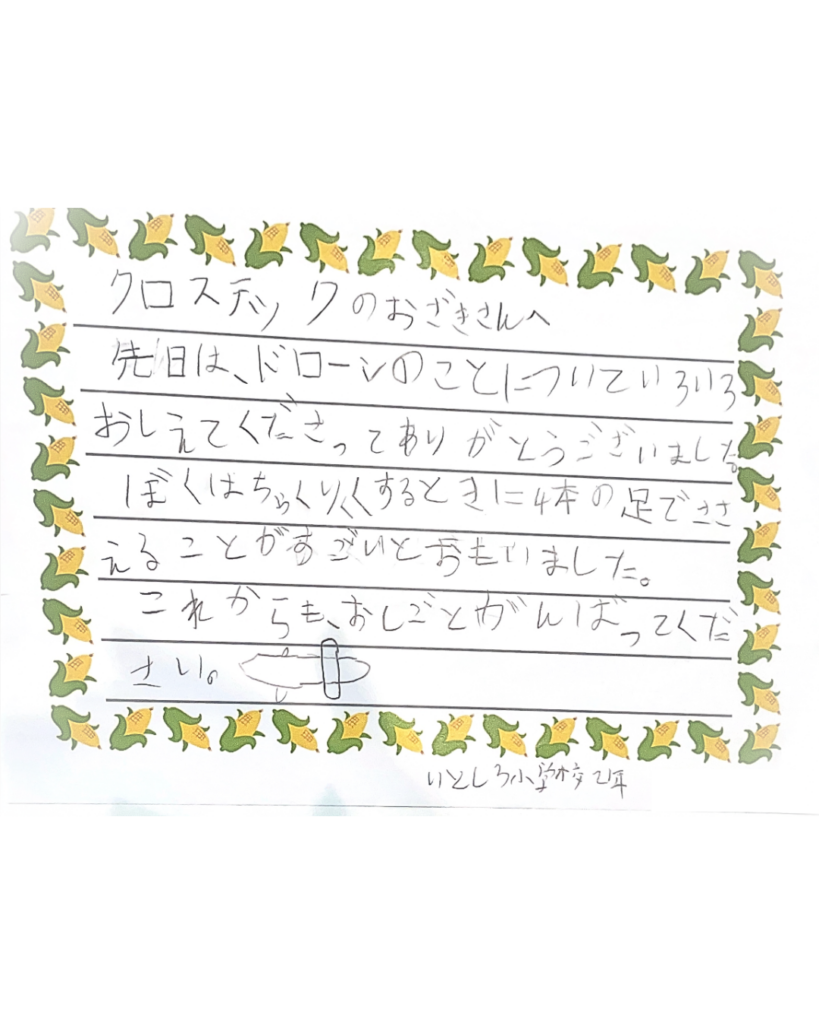 クロステックのおざきさんへ
先日は、ドローンのことについていろいろ
おしえてくださってありがとうございました。
ぼくはちゃくりくするときに4本の足でささ
えることがすごいとおもいました。
これからも、おしごとがんばってくだ
さい。
いとしろ小学校2年